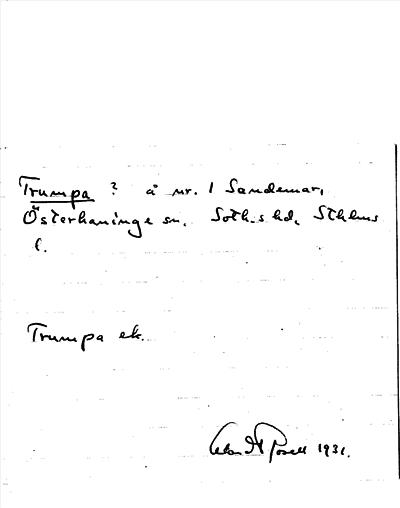 Trumpa ? å nr. 1 Sandemar,
Österhaninge sn. Soth.s hd, Sthlms
l.
Trumpa ek.
1931.